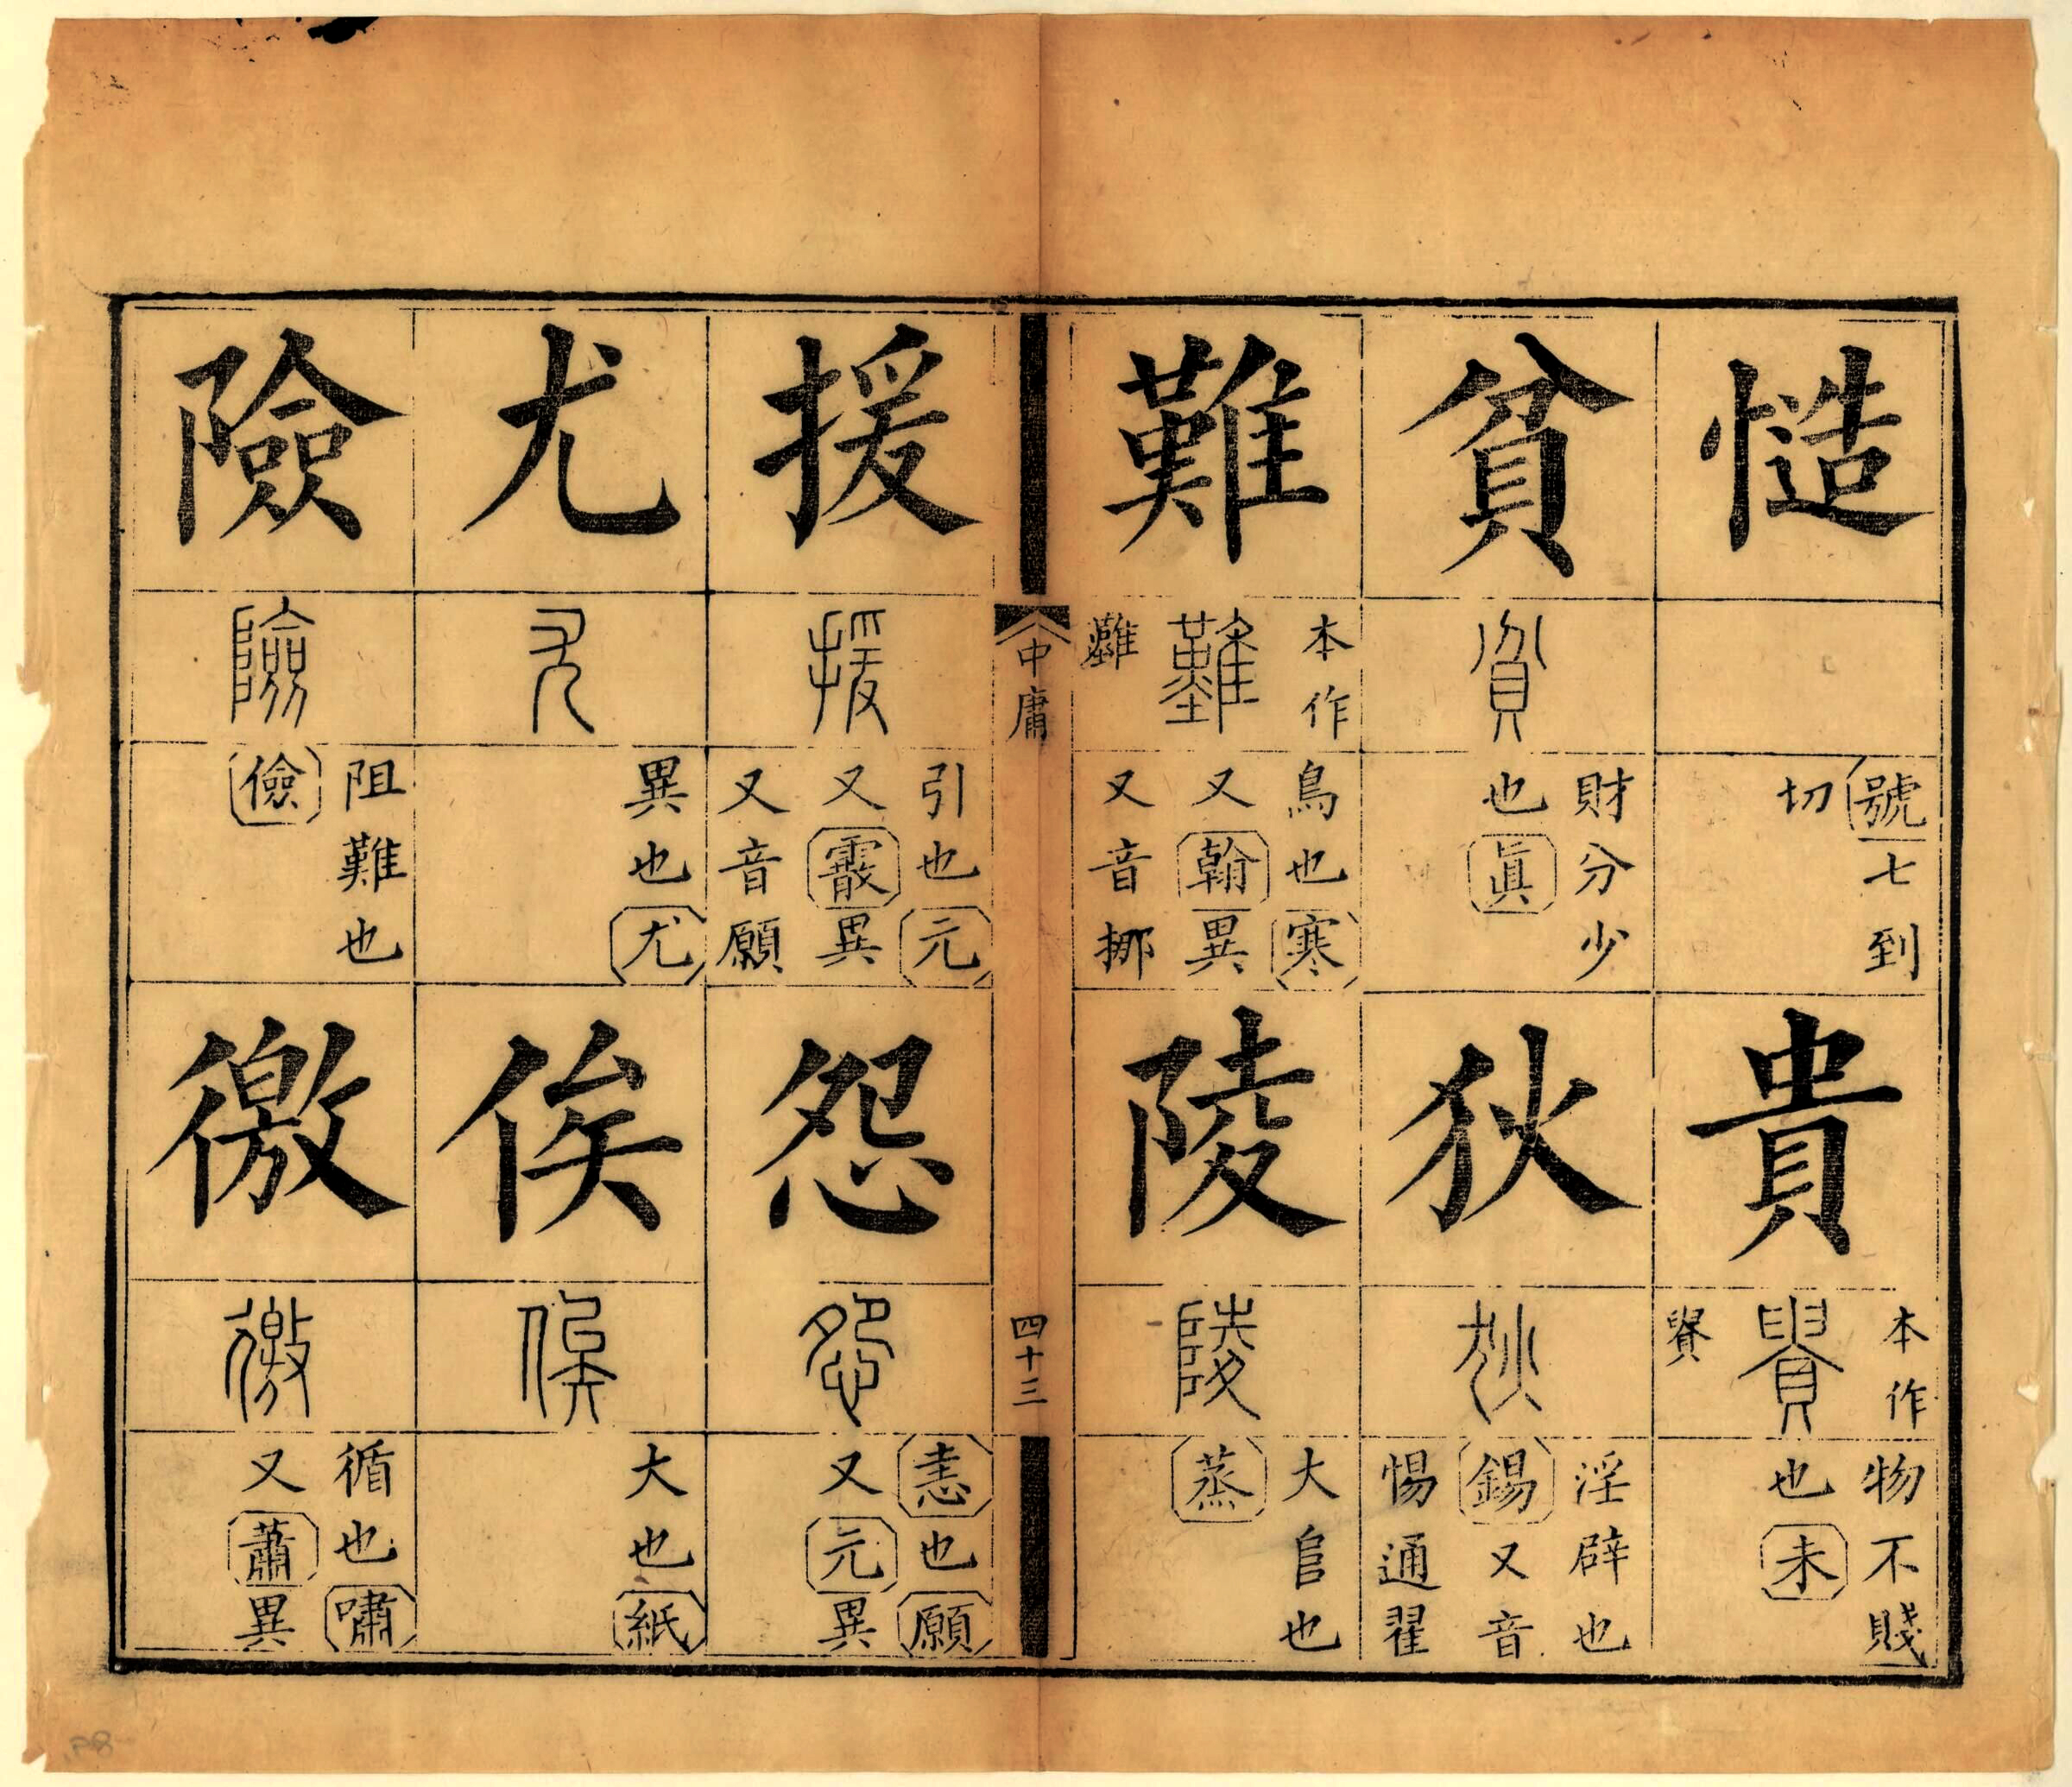 慥
號七到
切
貴
本作
貴
物不賤
也未
貧
貧
財分少
也眞
狄
狄
淫辟也
錫又音
惕通翟
難
本作
難
鳥也寒
又翰異
又音挪
陵
陵
大𨸏也
蒸
中庸
四十三
援
援
引也元
又霰異
又音願
怨
怨
恚也願
又元異
尤
尤
異也尤
俟
俟
大也紙
險
險
阻難也
儉
徼
徼
循也嘯
又蕭異